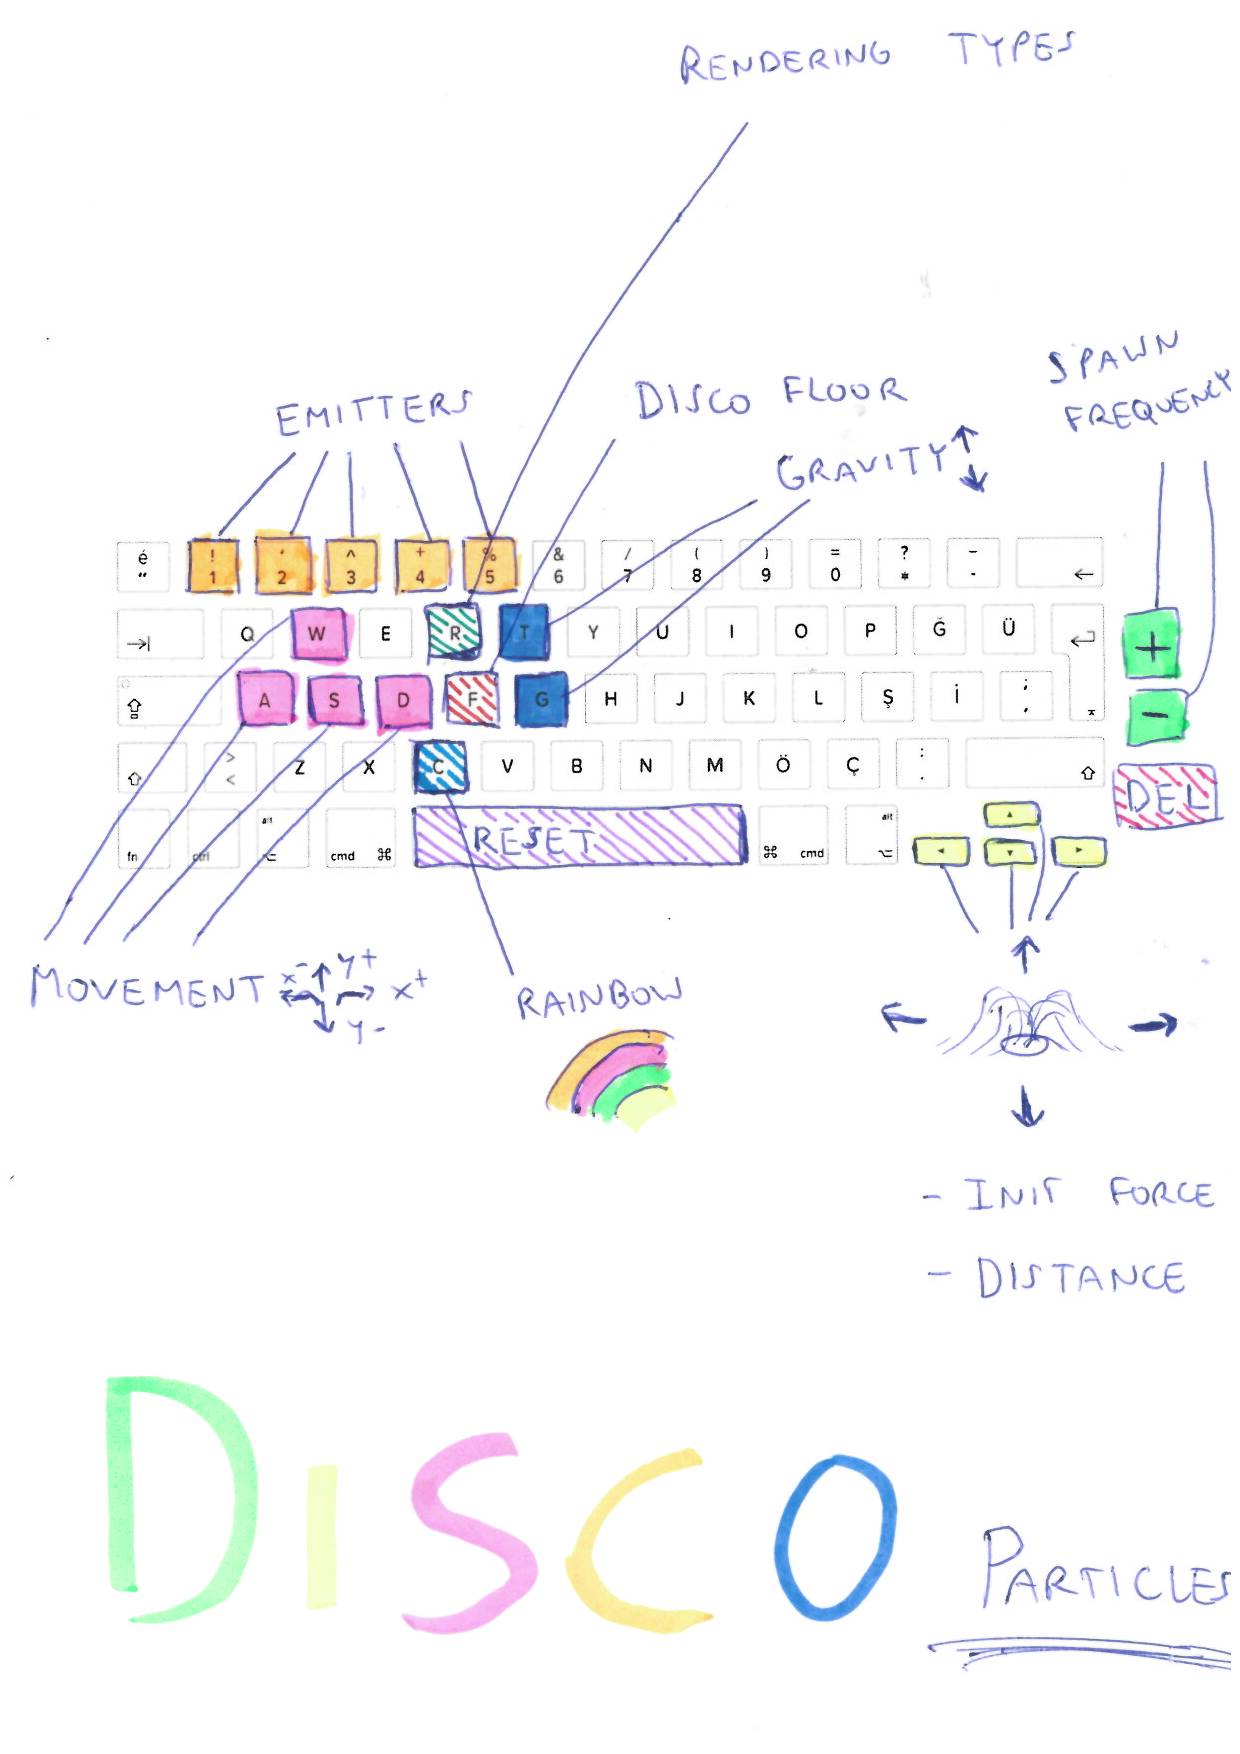 RENDERING TYPES
SPAWN
FREQUENCY
EMITTERS
DISCO FLOOR
GRAVITY ↑↓
é "
! 1
' 2
^ 3
+ 4
% 5
& 6
/ 7
( 8
) 9
= 0
? *
_ -
←
→| Q W E R T Y U I O P Ğ Ü
+
A S D F G H J K L Ş İ ; ,
−
> < Z X C V B N M Ö Ç : .
DEL
fn ctrl alt ⌥ cmd ⌘ RESET ⌘ cmd alt ⌥ ◄ ▲ ▼ ►
MOVEMENT X- Y+ X+ Y-
RAINBOW
- INIT FORCE
- DISTANCE
DISCO PARTICLES